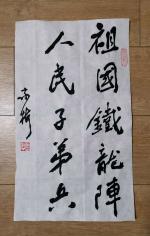 祖國鐵龍陣
人民子弟兵